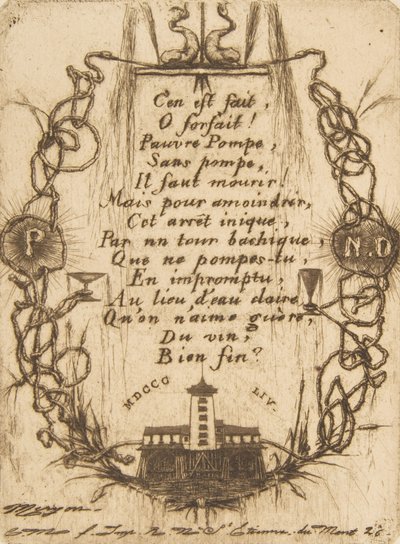 C'en est fait,
O forfait!
Pauvre Pompe,
Sans pompe,
Il faut mourir!
Mais pour amoindrir,
Cet arrêt inique,
Par un tour bachique,
Que ne pompes-tu,
En impromptu,
Au lieu d'eau claire,
Qu'on n'aime guère,
Du vin,
Bien fin?
P
N.D
MDCCC LIV.
Meryon
f. Imp. R. N. St Etienne du Mont 26